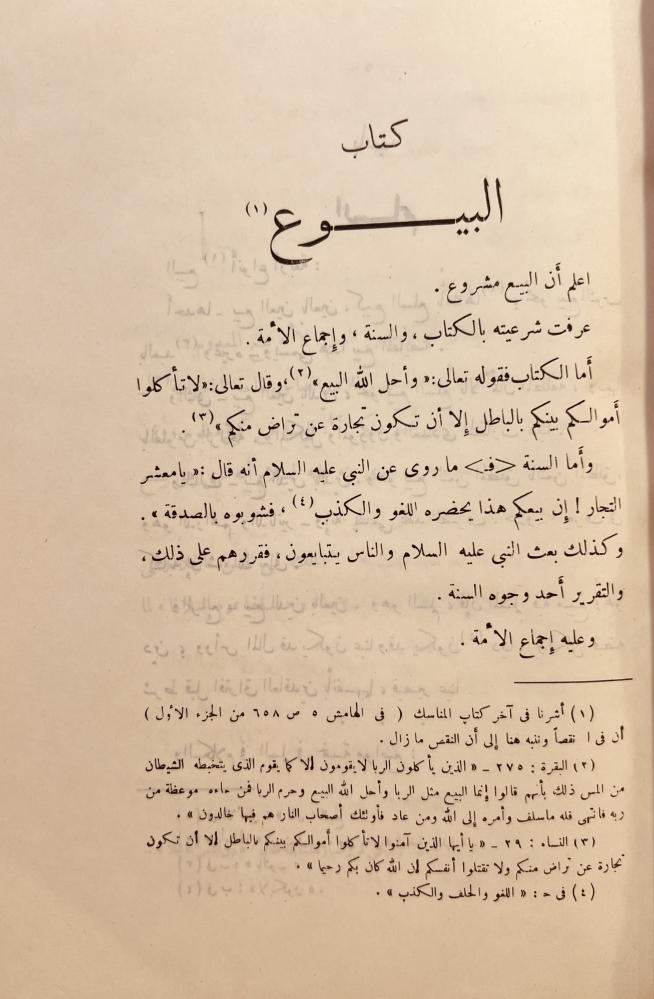 كتاب
البيوع (١)
اعلم أن البيع مشروع .
عرفت شرعيته بالكتاب ، والسنة ، وإجماع الأمة .
أما الكتاب فقوله تعالى : « وأحل الله البيع »(٢)، وقال تعالى : « لا تأكلوا
أموالكم بينكم بالباطل إلا أن تكون تجارة عن تراض منكم »(٣) .
وأما السنة <فـ> ما روى عن النبي عليه السلام أنه قال : « يامعشر
التجار ! إن بيعكم هذا يحضره اللغو والكذب(٤) ، فشوبوه بالصدقة » .
وكذلك بعث النبي عليه السلام والناس يتبايعون ، فقررهم على ذلك ،
والتقرير أحد وجوه السنة .
وعليه إجماع الأمة .
(١) أشرنا فى آخر كتاب المناسك ( فى الهامش ٥ ص ٦٥٨ من الجزء الأول )
أن فى ا نقصاً وننبه هنا إلى أن النقص ما زال .
(٢) البقرة : ٢٧٥ – « الذين يأكلون الربا لايقومون إلا كما يقوم الذى يتخبطه الشيطان
من المس ذلك بأنهم قالوا إنما البيع مثل الربا وأحل الله البيع وحرم الربا فمن جاءه موعظة من
ربه فانتهى فله ماسلف وأمره إلى الله ومن عاد فأولئك أصحاب النار هم فيها خالدون » .
(٣) النساء : ٢٩ – « يا أيها الذين آمنوا لاتأكلوا أموالكم بينكم بالباطل إلا أن تكون
تجارة عن تراض منكم ولا تقتلوا أنفسكم إن الله كان بكم رحيما » .
(٤) فى حـ : « اللغو والحلف والكذب » .